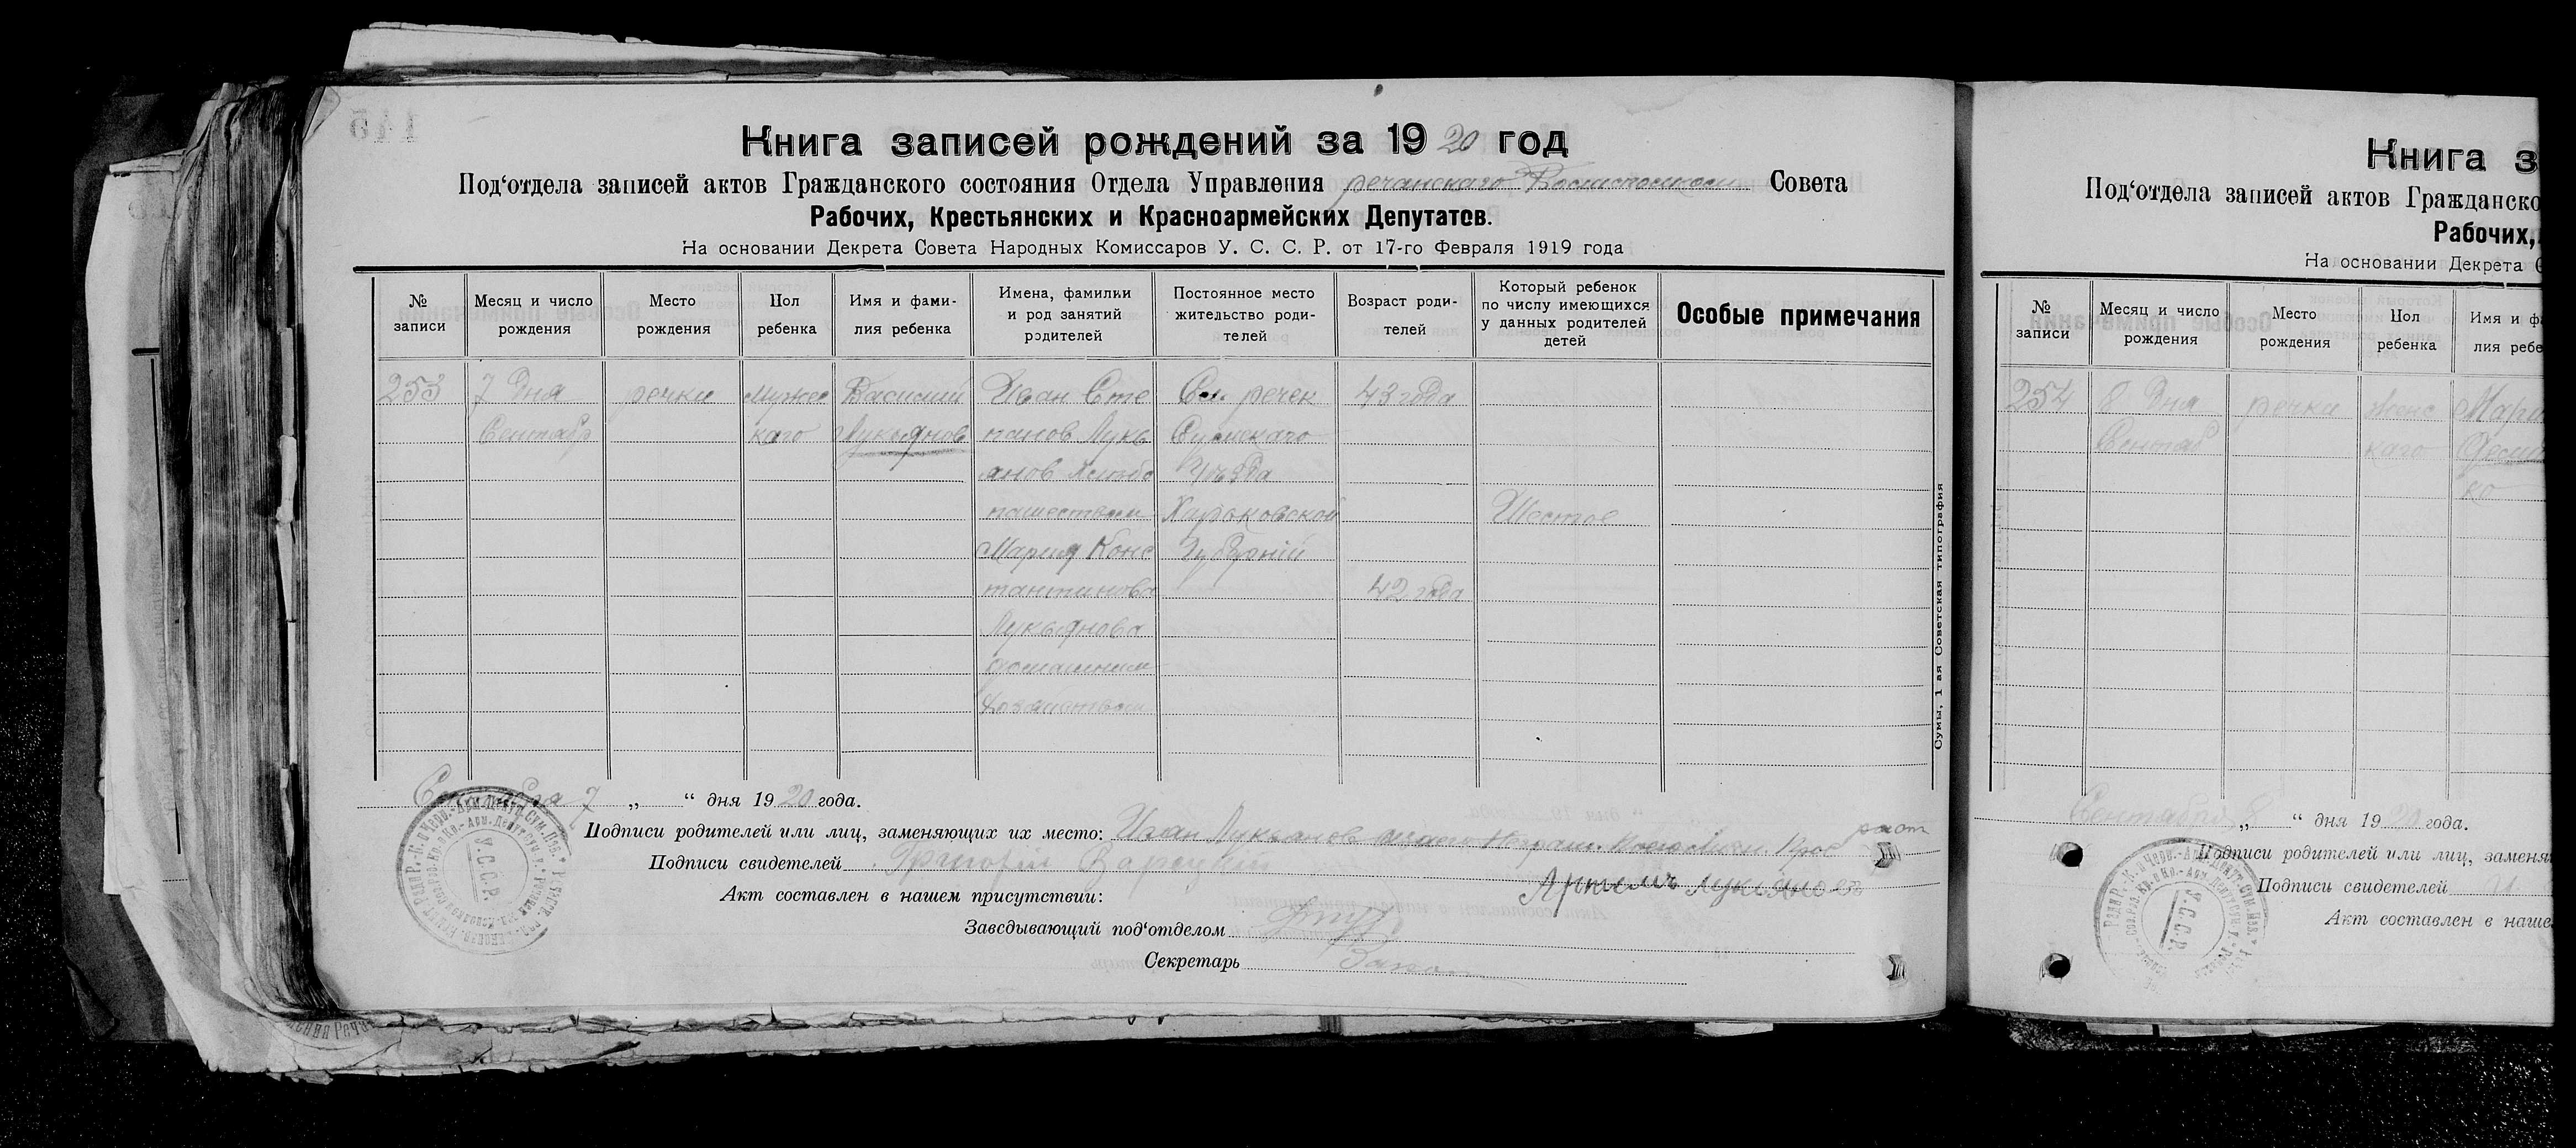 Книга записей рождений за 1920 год
Под'отдела записей актов Гражданского состояния Отдела Управления речанскаго Совета
Рабочих, Крестьянских и Красноармейских Депутатов.
На основании Декрета Совета Народных Комиссаров У. С. С. Р. от 17-го Февраля 1919 года
№ записи
Месяц и число рождения
Место рождения
Пол ребенка
Имя и фами-
лия ребенка
Имена, фамилии
и род занятий
родителей
Постоянное место
жительство роди-
телей
Возраст роди-
телей
Который ребенок
по числу имеющихся
у данных родителей
детей
Особые примечания
253
7 дня
Сентябр
речки
мужес
каго
Василий
Лукьянов
Иван Сте
панов Лукь
анов хлебо
пашеством
Мария Конс
тантинова
Лукьянова
домашним
хозайством
Сл. речек
Сумскаго
Уѣзда
Харьковской
Губернии
43 года
42 года
Шестое
Сумы, 1 ая Советская типография
Сентября 7 „ “ дня 1920 года.
Подписи родителей или лиц, заменяющих их место: Иван Лукьанов
Подписи свидетелей Григорий
Артемъ Лукьяновъ
Акт составлен в нашем присутствии:
Заведывающий под'отделом
Секретарь
У.С.С.Р.
Книга з
Под'отдела записей актов Гражданско
Рабочих,
На основании Декрета С
№ записи
Месяц и число рождения
Место рождения
Пол ребенка
Имя и ф
лия ребе
254
8 дня
Сентяб
речки
женс
каго
Мари
ко
Сентября 8 „ “ дня 1920 года.
Подписи родителей или лиц, заменя
Подписи свидетелей
Акт составлен в наше
У.С.С.Р.